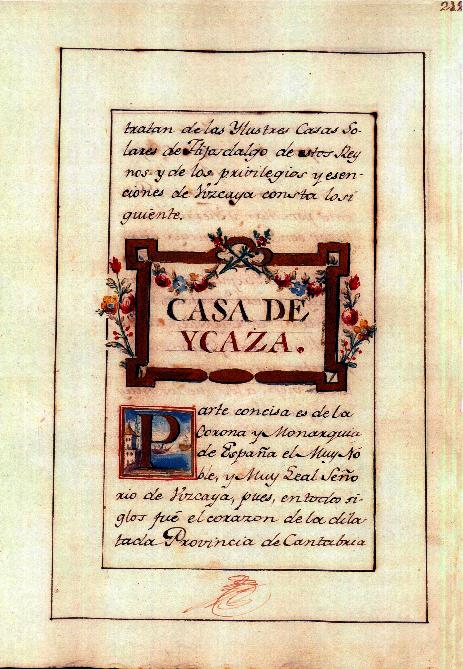 tratan de las Ylustres Casas So-
lares de Hijasdalgo de estos Rey
nos y de los privilegios y esen-
ciones de Vizcaya consta lo si
guiente.
CASA DE
YCAZA.
Parte concisa es de la
Corona y Monarquia
de España el Muy No
ble, y Muy Leal Seño
rio de Vizcaya, pues, en todos si-
glos fué el corazon de la dila
tada Provincia de Cantabria